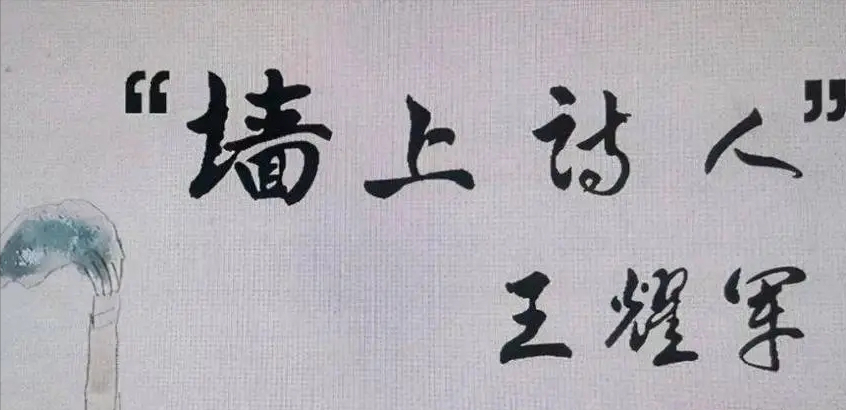 “墙上诗人”
王耀军